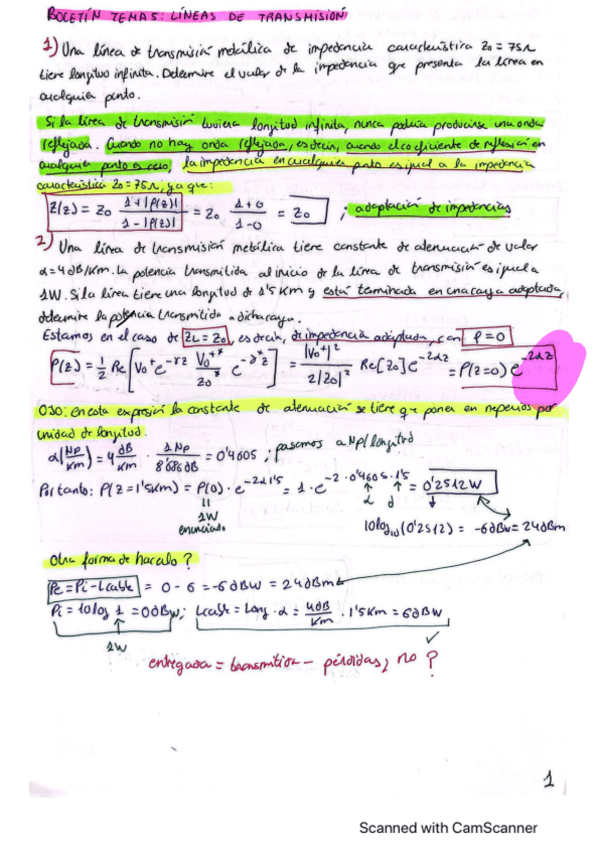 BOLETÍN TEMA 5: LÍNEAS DE TRANSMISIÓN
1) Una línea de transmisión metálica de impedancia característica Z0 = 75Ω
tiene longitud infinita. Determine el valor de la impedancia que presenta la línea en
cualquier punto.
Si la línea de transmisión tuviera longitud infinita, nunca podría producirse una onda
reflejada. Cuando no hay onda reflejada, es decir, cuando el coeficiente de reflexión en
cualquier punto es cero, la impedancia en cualquier punto es igual a la impedancia
característica Z0 = 75Ω, ya que:
Z(z) = Z0 (1+|ρ(z)|)/(1-|ρ(z)|) = Z0 (1+0)/(1-0) = Z0 ; adaptación de impedancias
2) Una línea de transmisión metálica tiene constante de atenuación de valor
α = 4 dB/Km. La potencia transmitida al inicio de la línea de transmisión es igual a
1W. Si la línea tiene una longitud de 1'5 Km y está terminada en una carga adaptada,
determine la potencia transmitida a dicha carga.
Estamos en el caso de ZL = Z0, es decir, de impedancia adaptada, con ρ = 0
P(z) = 1/2 Re[V0+ e^-γz V0+*/Z0* e^-γ*z] = |V0+|²/2|Z0|² Re[Z0] e^-2αz = P(z=0) e^-2αz
OJO: en esta expresión la constante de atenuación se tiene que poner en neperios por
unidad de longitud.
α(Np/Km) = 4 dB/Km · 1Np/8'686dB = 0'4605 ; pasamos a Np/longitud
Por tanto: P(z = 1'5Km) = P(0) · e^-2α1'5 = 1 · e^-2·0'4605·1'5 = 0'2512W
1W
enunciado
α d
10log10(0'2512) = -6dBw = 24dBm
Otra forma de hacerlo?
Pe = Pi - Lcable = 0 - 6 = -6 dBW = 24dBm
Pi = 10log 1 = 0dBw; Lcable = Long · α = 4dB/Km · 1'5Km = 6dBW
1W
entregada = transmitida - pérdidas, no?
1
Scanned with CamScanner